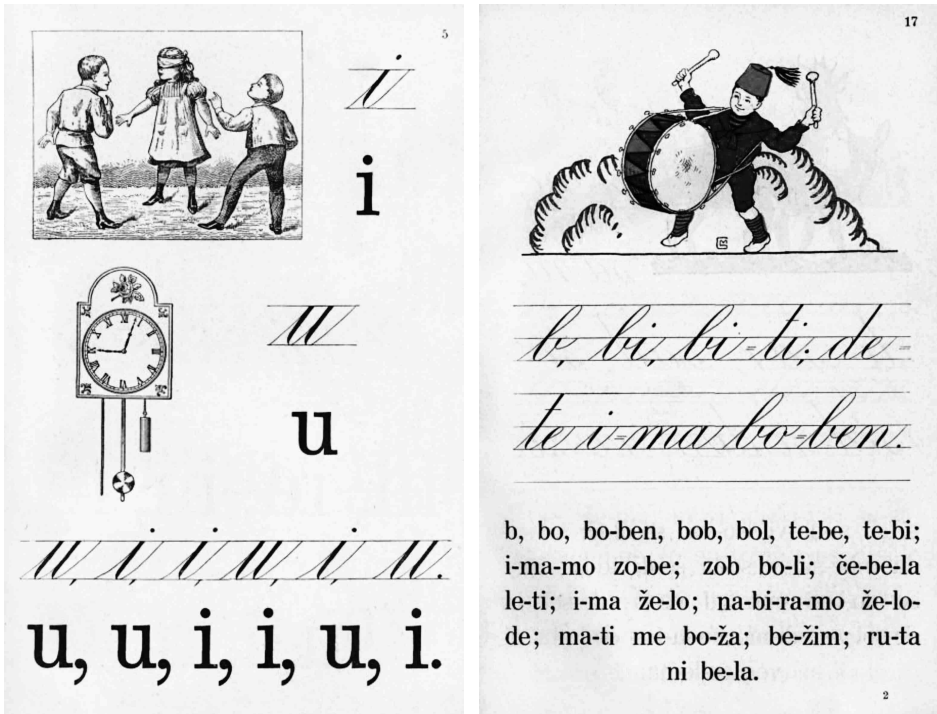 5
i
i
u
u
u, i, i, u, i, u.
u, u, i, i, u, i.
17
b, bi, bi=ti; de=
te i=ma bo=ben.
b, bo, bo-ben, bob, bol, te-be, te-bi;
i-ma-mo zo-be; zob bo-li; če-be-la
le-ti; i-ma že-lo; na-bi-ra-mo že-lo-
de; ma-ti me bo-ža; be-žim; ru-ta
ni be-la.
2